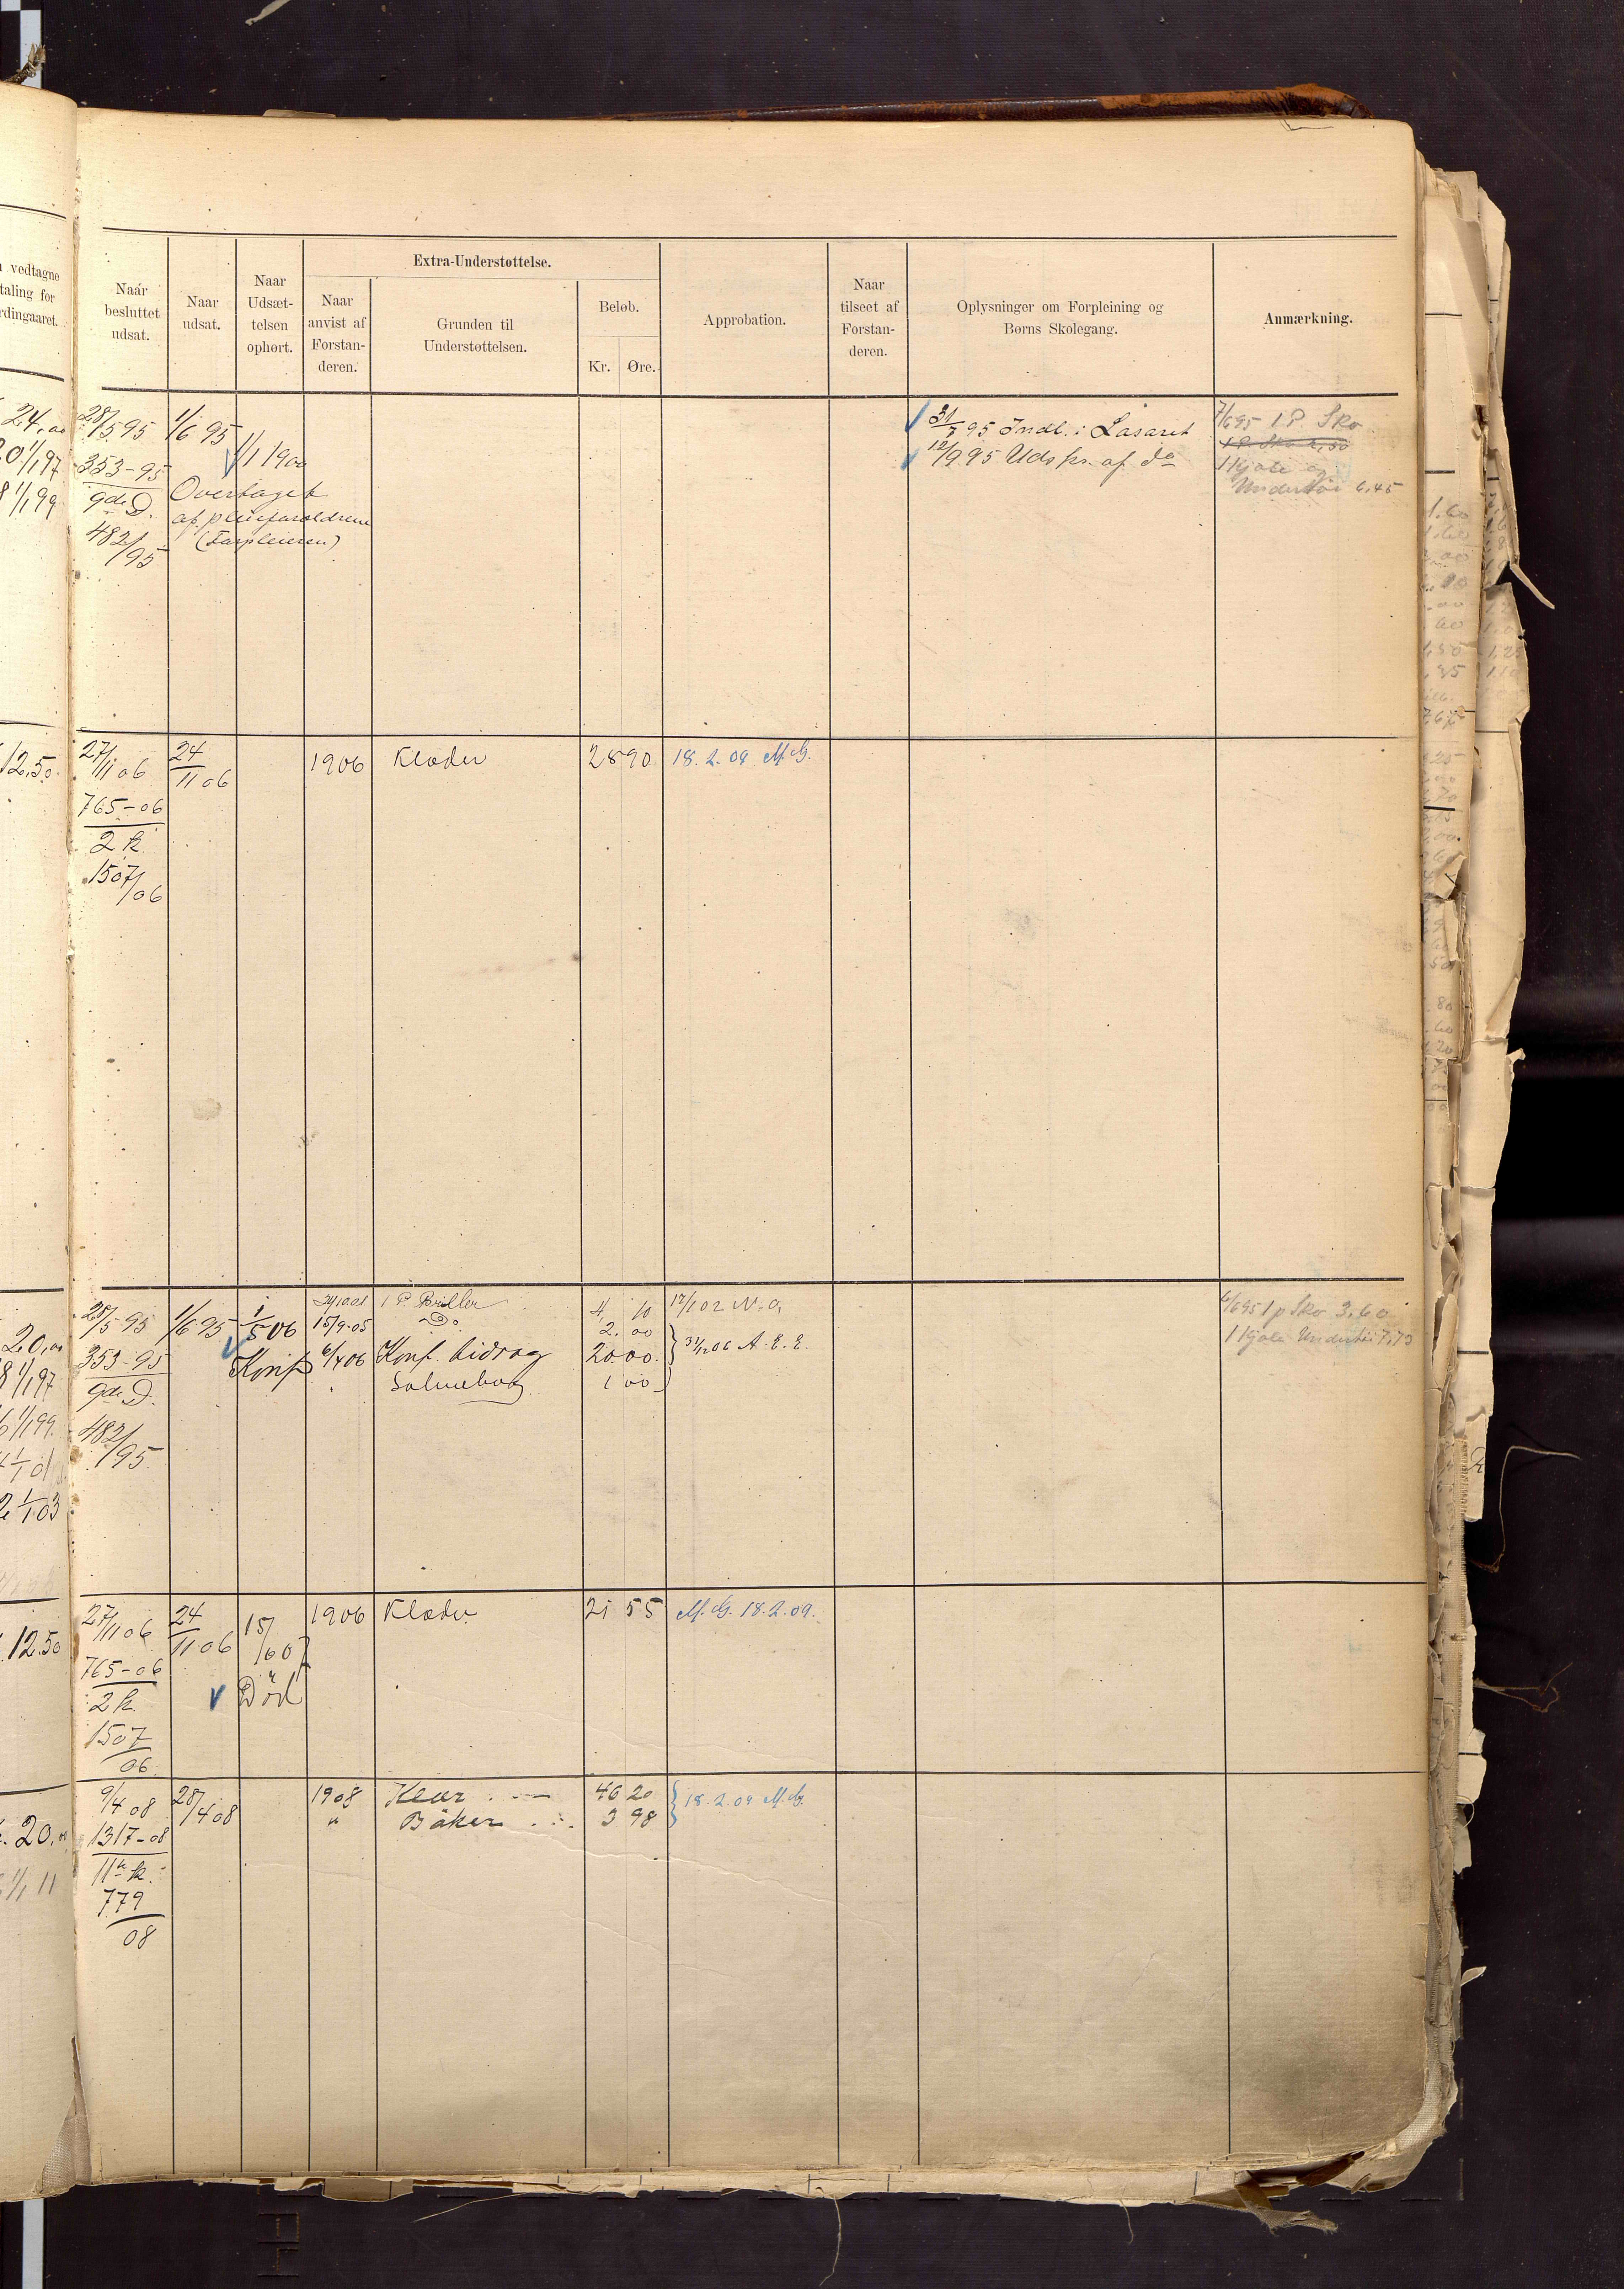 vedtagne
taling for
rdingaaret.
Naar besluttet udsat.
Naar udsat.
Naar Udsæt-telsen ophørt.
Extra-Understøttelse.
Naar anvist af Forstan-deren.
Grunden til Understøttelsen.
Beløb.
Kr.
Øre.
Approbation.
Naar tilseet af Forstan-deren.
Oplysninger om Forpleining og Børns Skolegang.
Anmærkning.
24,00
28/5 95
1/6 95
31/7 95 Indl. i Lasaret
7/6 95 1 P. Sko
1/1 97
353-95
1/1 1900
12/9 95 Udskr. af do
1/1 99
gde D.
Overtaget
1 Kjole og
482/95
af pleieforældrene
Undertøi 6,45
(Forpleieren)
12,50
27/11 06
24/11 06
1906
Klæder
28 90
18.2.09 M.G.
765-06
2 k.
1507/06
20,00
28/5 95
1/6 95
1/5 06
1 P. Briller
4, 10
17/1 02 N.A.
6/6 95 1 p Sko 3,60
15/9-05
Do
2,00
1 Kjole Undertøi 7,73
353-95
Konf
6/4 06
Konf. bidrag
20.00
31/12 06 A.E.E.
1/1 97
gde D.
Salmebog
1 00
1/1 99
482/95
1/1 03
12.50
27/11 06
24/11 06
15/6 07
1906
Klæder
21 55
M.G. 18.2.09.
765-06
2 k.
Död
1507/06
20,00
9/4 08
28/4 08
1908
Klær
46 20
18.2.09 M.G.
1317-08
"
Bøker
3 98
1/1 11
11te k.
779/08